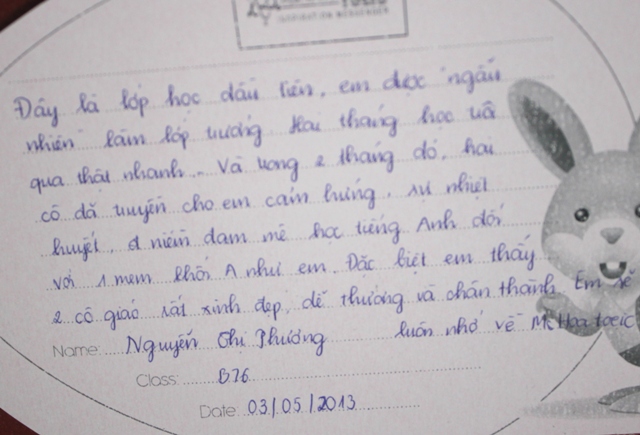 TOEIC
INSPIRATION MESSENGER
Đây là lớp học đầu tiên, em được "ngẫu
nhiên" làm lớp trưởng. Hai tháng học trôi
qua thật nhanh... Và trong 2 tháng đó, hai
cô đã truyền cho em cảm hứng, sự nhiệt
huyết, niềm đam mê học tiếng Anh đối
với 1 mem khối A như em. Đặc biệt em thấy
2 cô giáo rất xinh đẹp, dễ thương và chân thành. Em sẽ
luôn nhớ về Ms Hoa toeic
Name: Nguyễn Thị Phương
Class: B76
Date: 03/05/2013